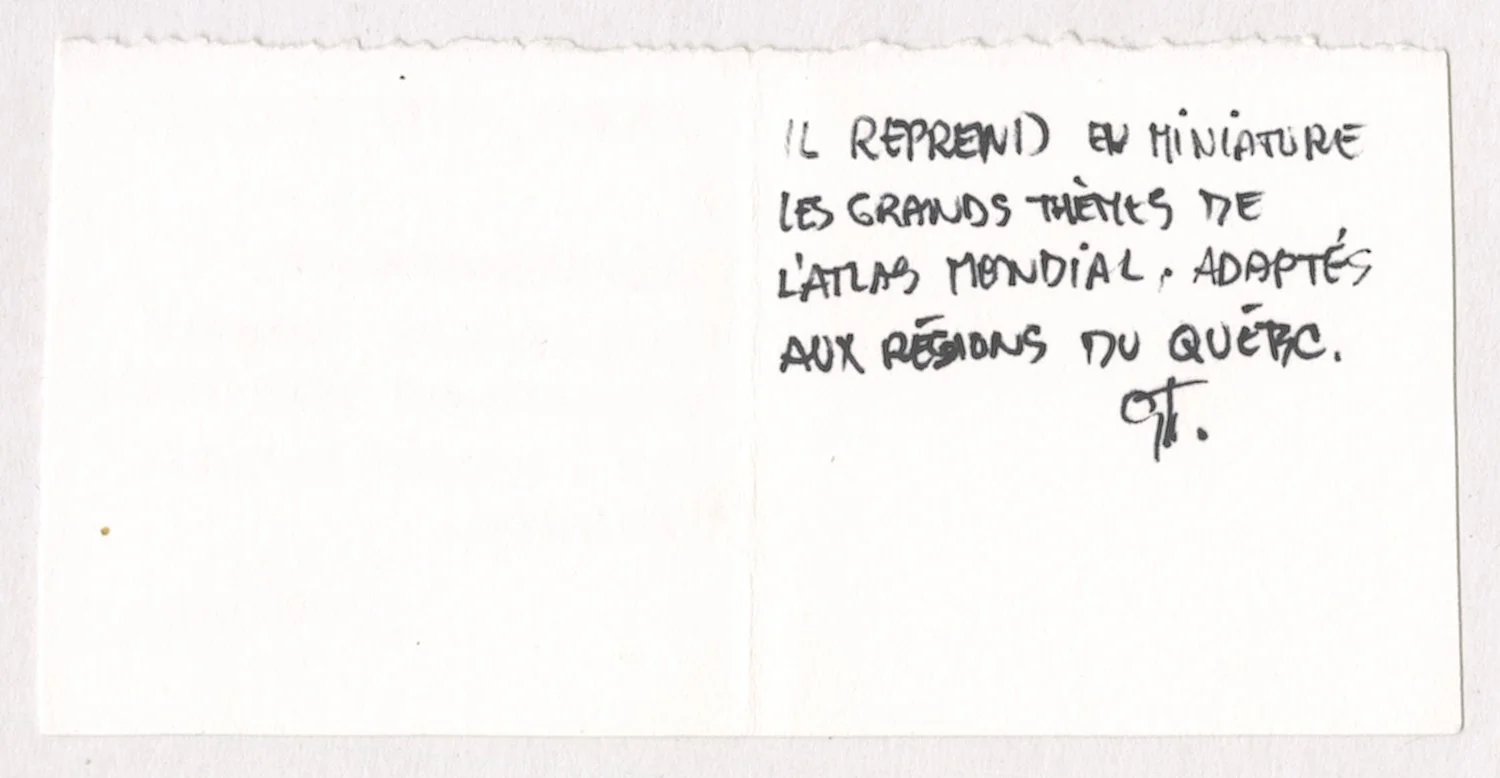 IL REPREND EN MINIATURE
LES GRANDS THÈMES DE
L'ATLAS MONDIAL, ADAPTÉS
AUX RÉGIONS DU QUÉBC.